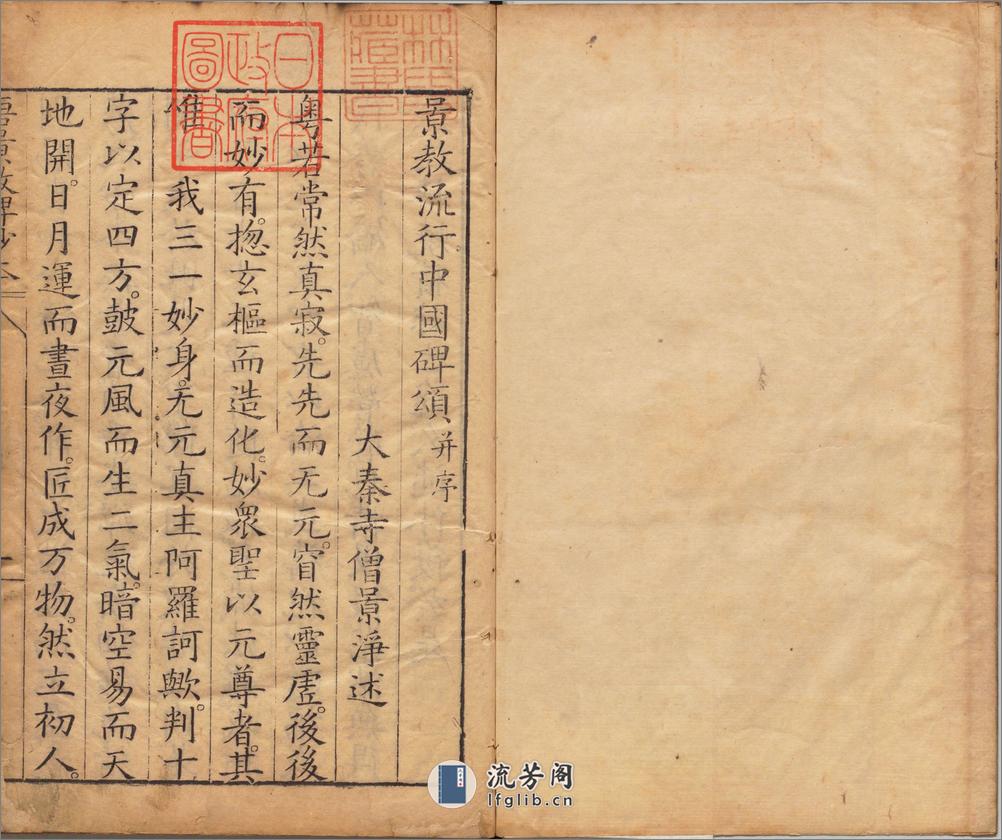 景教流行中國碑頌并序
大秦寺僧景淨述
粵若常然真寂。先先而无元。窅然靈虛。後後
而妙有。惣玄樞而造化。妙眾聖以元尊者。其
唯 我三一妙身。无元真主阿羅訶歟。判十
字以定四方。鼓元風而生二氣。暗空易而天
地開。日月運而晝夜作。匠成万物。然立初人。
日本政府圖書
林氏藏書
流芳阁
lfglib.cn